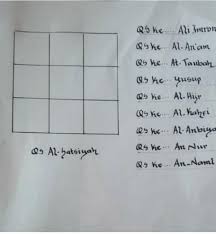 QS ke.... Ali Imron
QS ke.... Al-An'am
QS ke.... At-Taubah
QS ke.... Yusup
QS ke.... Al-Hijr
QS ke.... Al-Kahfi
QS ke.... Al-Anbiya
QS ke.... An Nur
QS ke.... An-Naml
QS Al-Jatsiyah